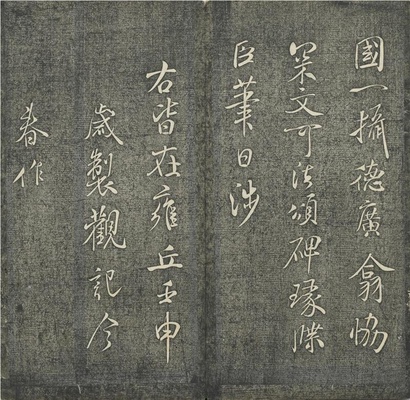 國一攝德廣翕協
文可法頌碑瑑牒
臣筆日涉
右皆在雍丘壬申
歲製觀記今
春作